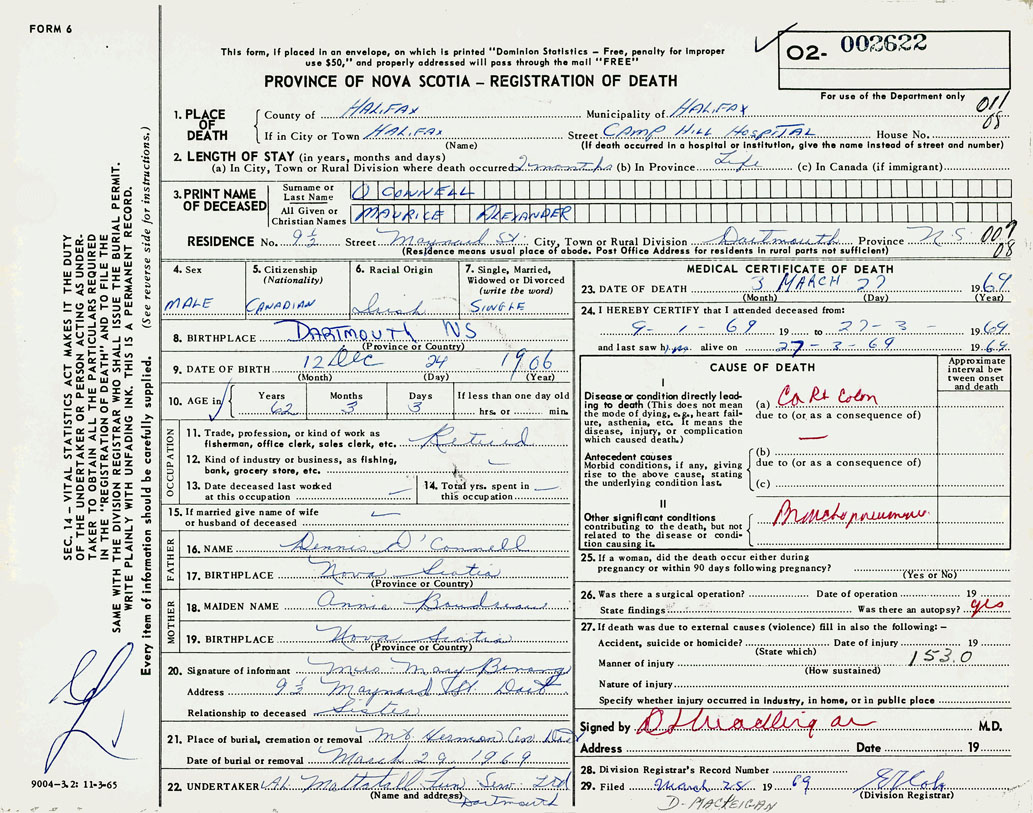 FORM 6
This form, if placed in an envelope, on which is printed "Dominion Statistics – Free, penalty for improper
use $50," and properly addressed will pass through the mail "FREE"
O2- 002622
PROVINCE OF NOVA SCOTIA – REGISTRATION OF DEATH
For use of the Department only
011
08
1. PLACE OF DEATH
County of HALIFAX Municipality of HALIFAX
If in City or Town HALIFAX Street CAMP HILL HOSPITAL House No.
(Name) (If death occurred in a hospital or institution, give the name instead of street and number)
2. LENGTH OF STAY (in years, months and days)
(a) In City, Town or Rural Division where death occurred 2 months (b) In Province Life (c) In Canada (if immigrant)
3. PRINT NAME OF DECEASED
Surname or Last Name O CONNELL
All Given or Christian Names MAURICE ALEXANDER
RESIDENCE No. 9½ Street Maynard St. City, Town or Rural Division Dartmouth Province N.S.
(Residence means usual place of abode. Post Office Address for residents in rural parts not sufficient)
009
08
4. Sex
MALE
5. Citizenship
(Nationality)
CANADIAN
6. Racial Origin
Irish
7. Single, Married,
Widowed or Divorced
(write the word)
SINGLE
8. BIRTHPLACE DARTMOUTH NS
(Province or Country)
9. DATE OF BIRTH 12 Dec 24 1906
(Month) (Day) (Year)
10. AGE in
Years Months Days If less than one day old
62 3 3 hrs. or min.
OCCUPATION
11. Trade, profession, or kind of work as
fisherman, office clerk, sales clerk, etc. Retired
12. Kind of industry or business, as fishing,
bank, grocery store, etc. –
13. Date deceased last worked
at this occupation –
14. Total yrs. spent in
this occupation –
15. If married give name of wife
or husband of deceased –
FATHER
16. NAME Dennis O'Connell
17. BIRTHPLACE Nova Scotia
(Province or Country)
MOTHER
18. MAIDEN NAME Annie Boudreau
19. BIRTHPLACE Nova Scotia
(Province or Country)
20. Signature of informant Mary
Address 9½ Maynard St. Dart
Relationship to deceased Sister
21. Place of burial, cremation or removal Mt Herman Cem
Date of burial or removal March 29, 1969
22. UNDERTAKER Mattatall Fun Serv. Ltd
(Name and address) Dartmouth
MEDICAL CERTIFICATE OF DEATH
23. DATE OF DEATH 3 MARCH 27 1969
(Month) (Day) (Year)
24. I HEREBY CERTIFY that I attended deceased from:
9 - 1 - 69 19 to 27 - 3 - 1969
and last saw him alive on 27 - 3 - 69 1969
CAUSE OF DEATH
Approximate
interval be-
tween onset
and death
I
Disease or condition directly lead-
ing to death (This does not mean
the mode of dying, e.g., heart fail-
ure, asthenia, etc. It means the
disease, injury, or complication
which caused death.)
(a) Ca Rt Colon
due to (or as a consequence of)
—
Antecedent causes
Morbid conditions, if any, giving
rise to the above cause, stating
the underlying condition last.
(b)
due to (or as a consequence of)
(c)
II
Other significant conditions
contributing to the death, but not
related to the disease or condi-
tion causing it.
Bronchopneumonia
25. If a woman, did the death occur either during
pregnancy or within 90 days following pregnancy?
(Yes or No)
26. Was there a surgical operation? Date of operation 19
State findings Was there an autopsy? yes
27. If death was due to external causes (violence) fill in also the following: –
Accident, suicide or homicide? Date of injury 19
(State which)
153.0
Manner of injury
(How sustained)
Nature of injury
Specify whether injury occurred in industry, in home, or in public place
Signed by M.D.
Address Date 19
28. Division Registrar's Record Number
29. Filed March 28 1969
(Division Registrar)
D. MACKEIGAN
SEC. 14 – VITAL STATISTICS ACT MAKES IT THE DUTY
OF THE UNDERTAKER OR PERSON ACTING AS UNDER-
TAKER TO OBTAIN ALL THE PARTICULARS REQUIRED
IN THE "REGISTRATION OF DEATH" AND TO FILE THE
SAME WITH THE DIVISION REGISTRAR WHO SHALL ISSUE THE BURIAL PERMIT.
WRITE PLAINLY WITH UNFADING INK. THIS IS A PERMANENT RECORD.
Every item of information should be carefully supplied. (See reverse side for instructions.)
9004-3.2: 11-3-65